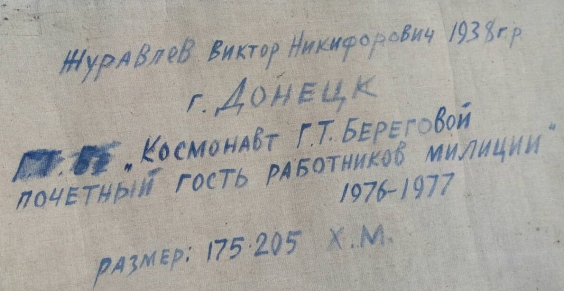 Журавлев Виктор Никифорович 1938 г.р
г. Донецк
„Космонавт Г.Т. Береговой
почетный гость работников милиции"
1976-1977
размер: 175·205 Х.М.